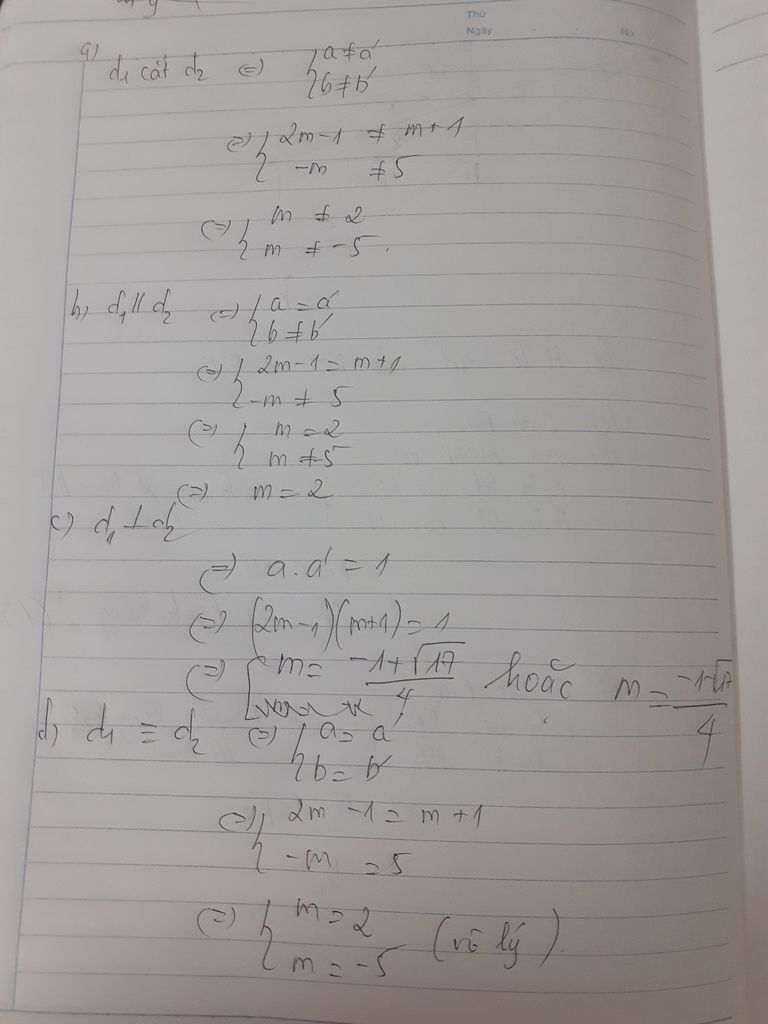 Thứ
Ngày . . No
a) d₁ cắt d₂ (=) { a ≠ a'
b ≠ b'
(=) { 2m-1 ≠ m+1
-m ≠ 5
(=) { m ≠ 2
m ≠ -5.
b, d₁ // d₂ (=) { a = a'
b ≠ b'
(=) { 2m-1 = m+1
-m ≠ 5
(=) { m = 2
m ≠ 5
(=) m = 2
c) d₁ ⊥ d₂
(=) a.a' = 1
(=) (2m-1)(m+1) = 1
(=) [ m = (-1+√17)/4 hoặc m = (-1-√17)/4
d, d₁ ≡ d₂ (=) { a = a'
b = b'
(=) { 2m-1 = m+1
-m = 5
(=) { m = 2
m = -5 (vô lý).